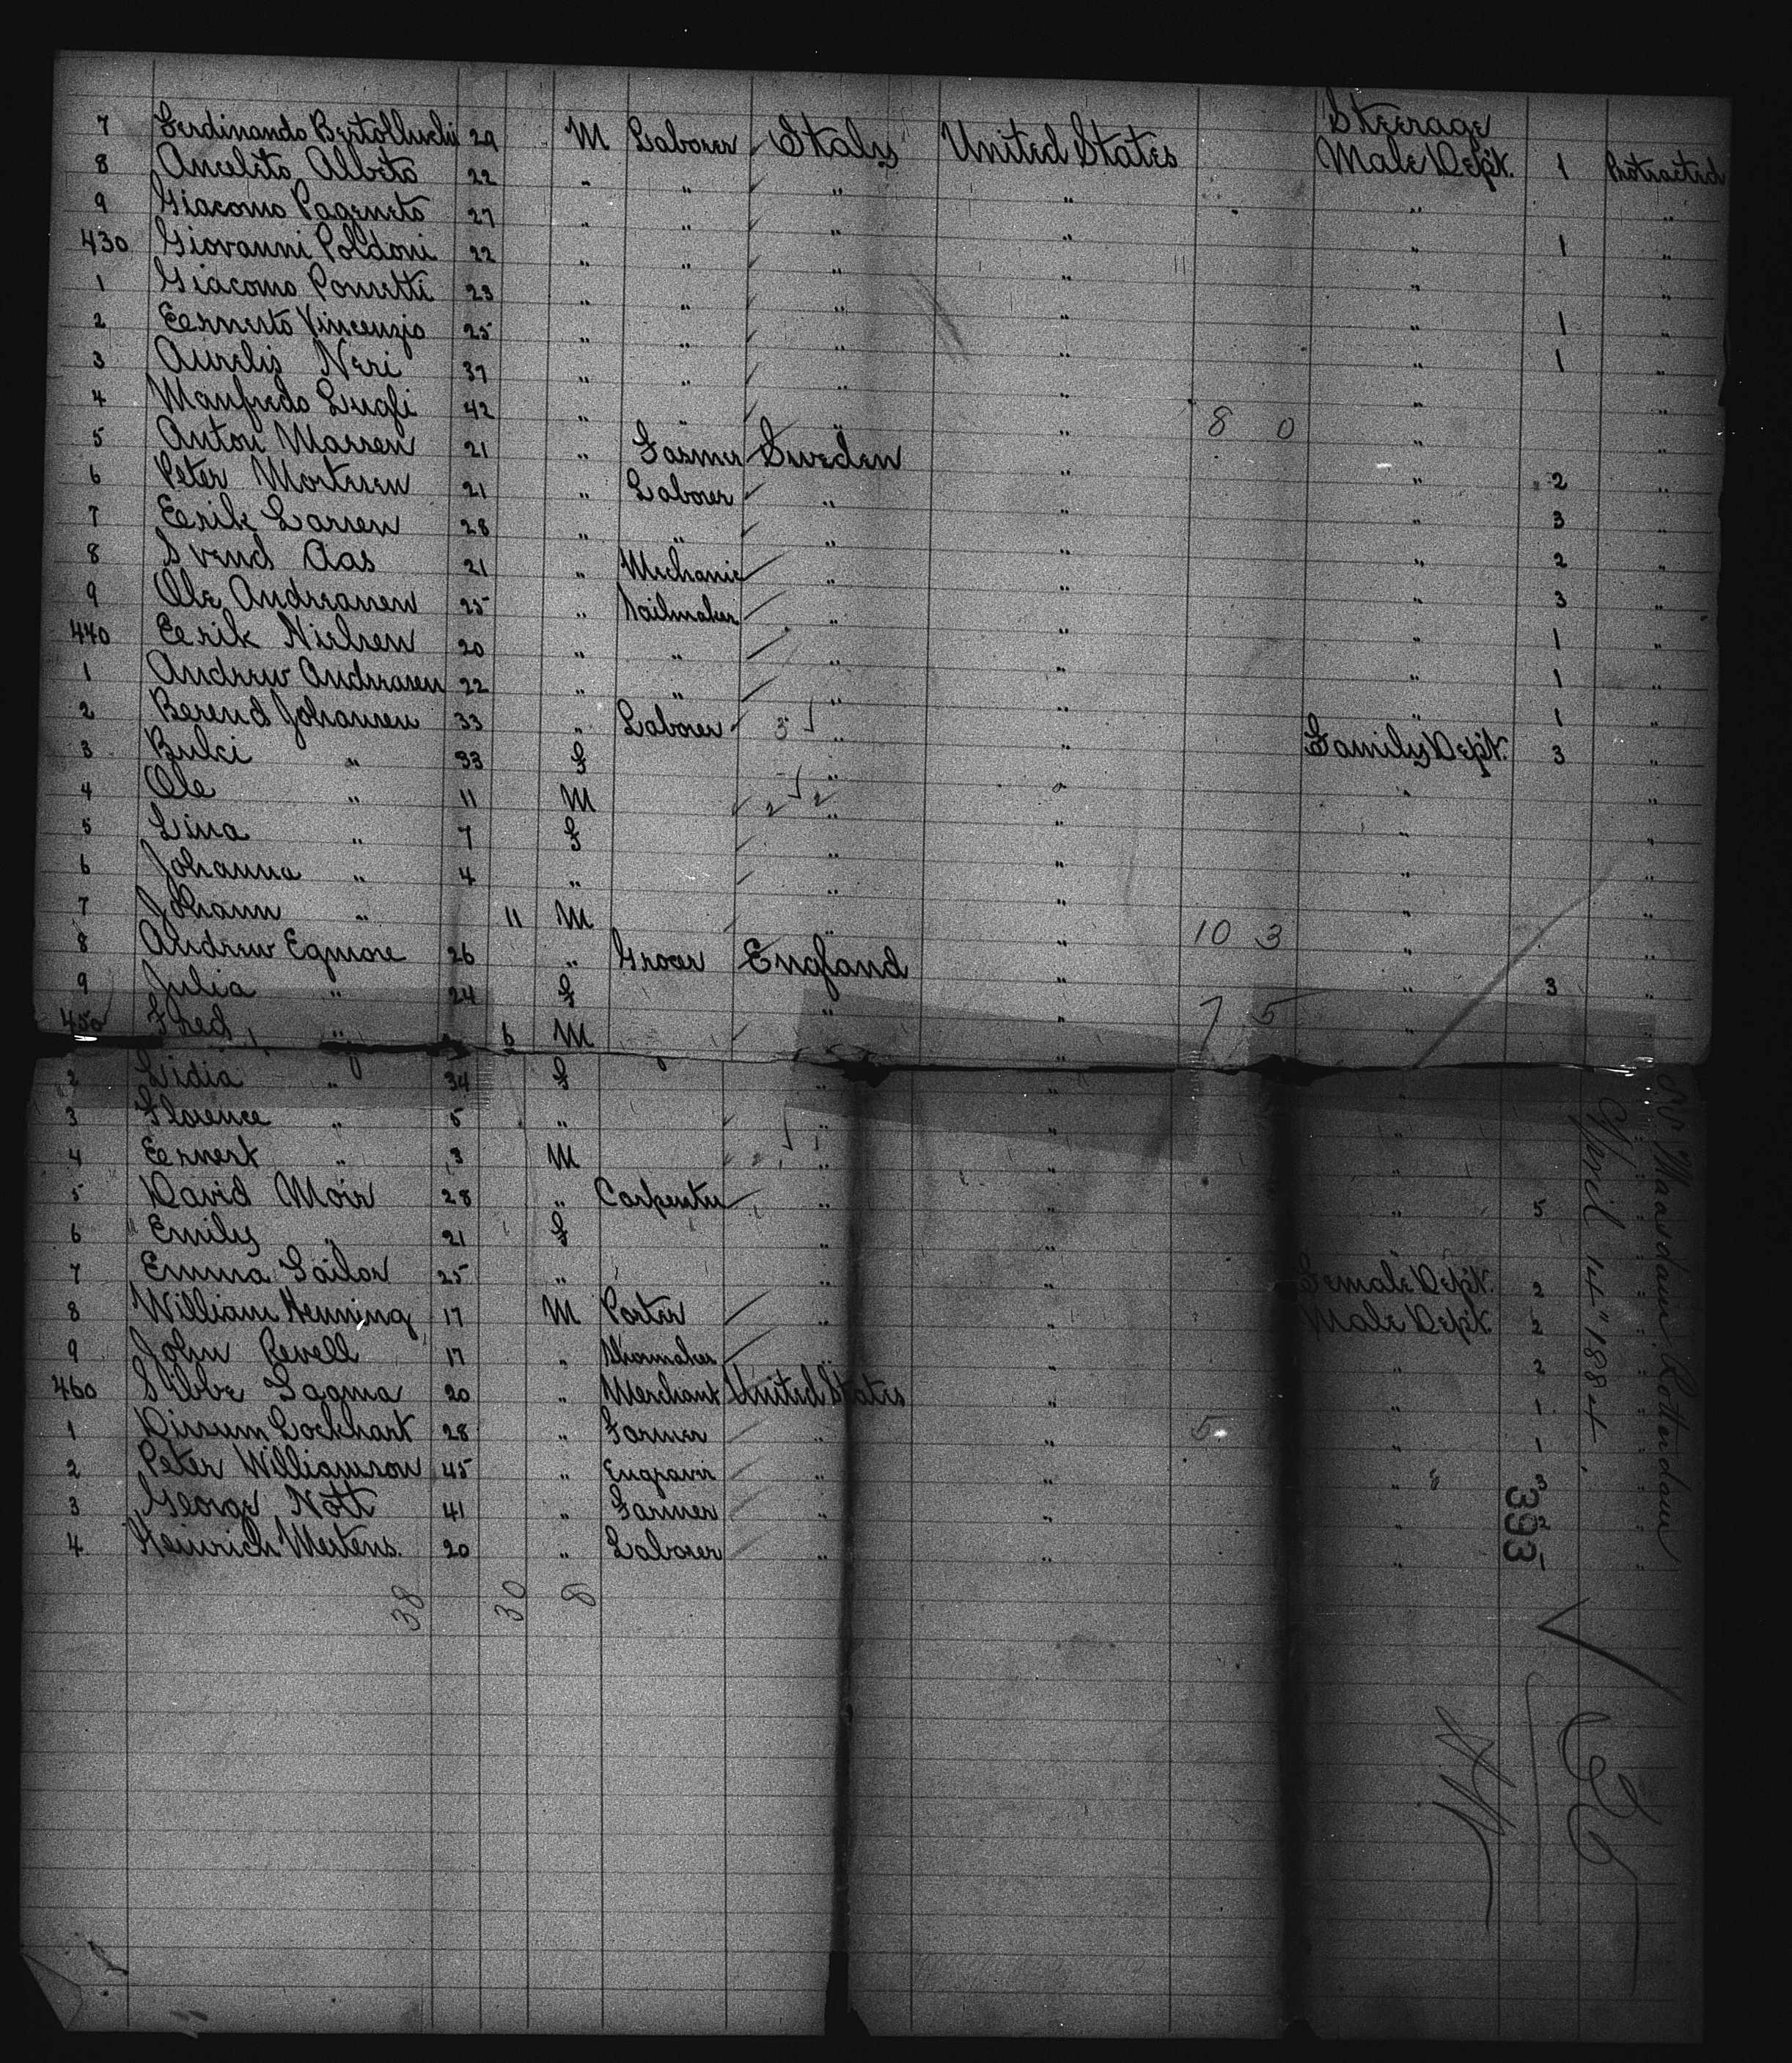 Steerage
7 Ferdinando Bertolluchi 29 M Laborer Italy United States Male Dept. 1 Protracted
8 Ancelito Albeto 22 " " " " " "
9 Giacomo Pageneto 27 " " " " " 1 "
430 Giovanni Poldoni 22 " " " " " "
1 Giacomo Ponsetti 23 " " " " " 1 "
2 Eernesto Vincenzio 25 " " " " " 1 "
3 Aurelis Neri 37 " " " " " "
4 Manfredo Luigli 42 " " " " 8 0 " "
5 Anton Marsen 21 " Farmer Sweden " " 2 "
6 Peter Mortesen 21 " Laborer " " " 3 "
7 Eerik Larsen 28 " " " " " 2 "
8 Svend Aas 21 " Mechanic " " " 3 "
9 Ole Andreasen 25 " Sailmaker " " " 1 "
440 Eerik Nielsen 20 " " " " " 1 "
1 Andrew Andreasen 22 " " " " " 1 "
2 Berend Johansen 33 " Laborer " " Family Dept. 3 "
3 Bulci " 33 F " " " "
4 Ole " 11 M " " " "
5 Lina " 7 F " " " "
6 Johanna " 4 " " " " "
7 Johann " 11 M " " 10 3 " "
8 Andrew Egmore 26 " Grocer England " " 3 "
9 Julia " 24 F " " 7 5 " "
450 Fred " 6 M "
2 Lidia " 34 F " " "
3 Florence " 5 " " " "
4 Eernest " 3 M " " "
5 David Moir 28 " Carpenter " " " 5
6 Emily " 21 F " "
7 Emma Sailor 25 " " " Female Dept. 2
8 William Henning 17 M Porter " " Male Dept. 2
9 John Revell 17 " Shoemaker " " " 2
460 Sibbe Lagma 20 " Merchant United States " " 1
1 Dirsum Lockhart 28 " Farmer " " 5 " 1
2 Peter Williamson 45 " Engraver " " " 3
3 George Nott 41 " Farmer " " " 2
4 Heinrich Mertens. 20 " Laborer " " " 1
38 30 8
Maasdam, Rotterdam
April 14" 1884.
393